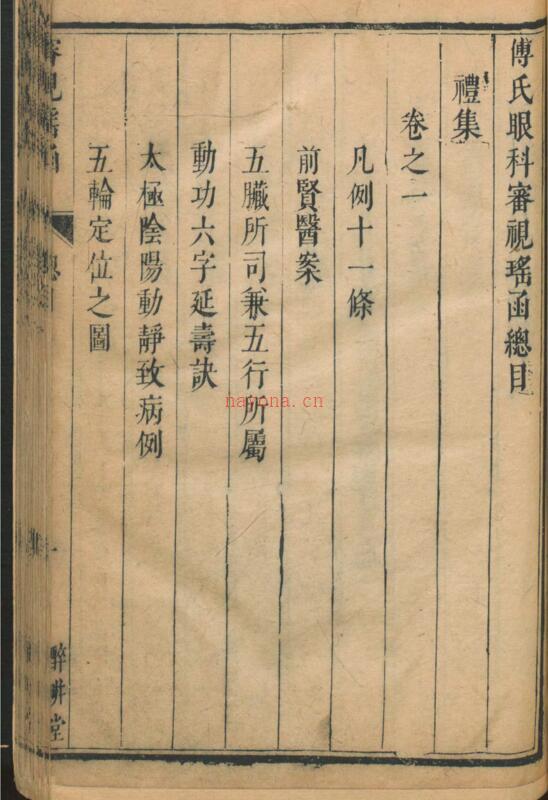 傅氏眼科審視瑤函總目
禮集
卷之一
凡例十一條
前賢醫案
五臟所司兼五行所屬
動功六字延壽訣
太極陰陽動靜致病例
五輪定位之圖
審視瑤函
總目
一
醉畊堂
nayona.cn